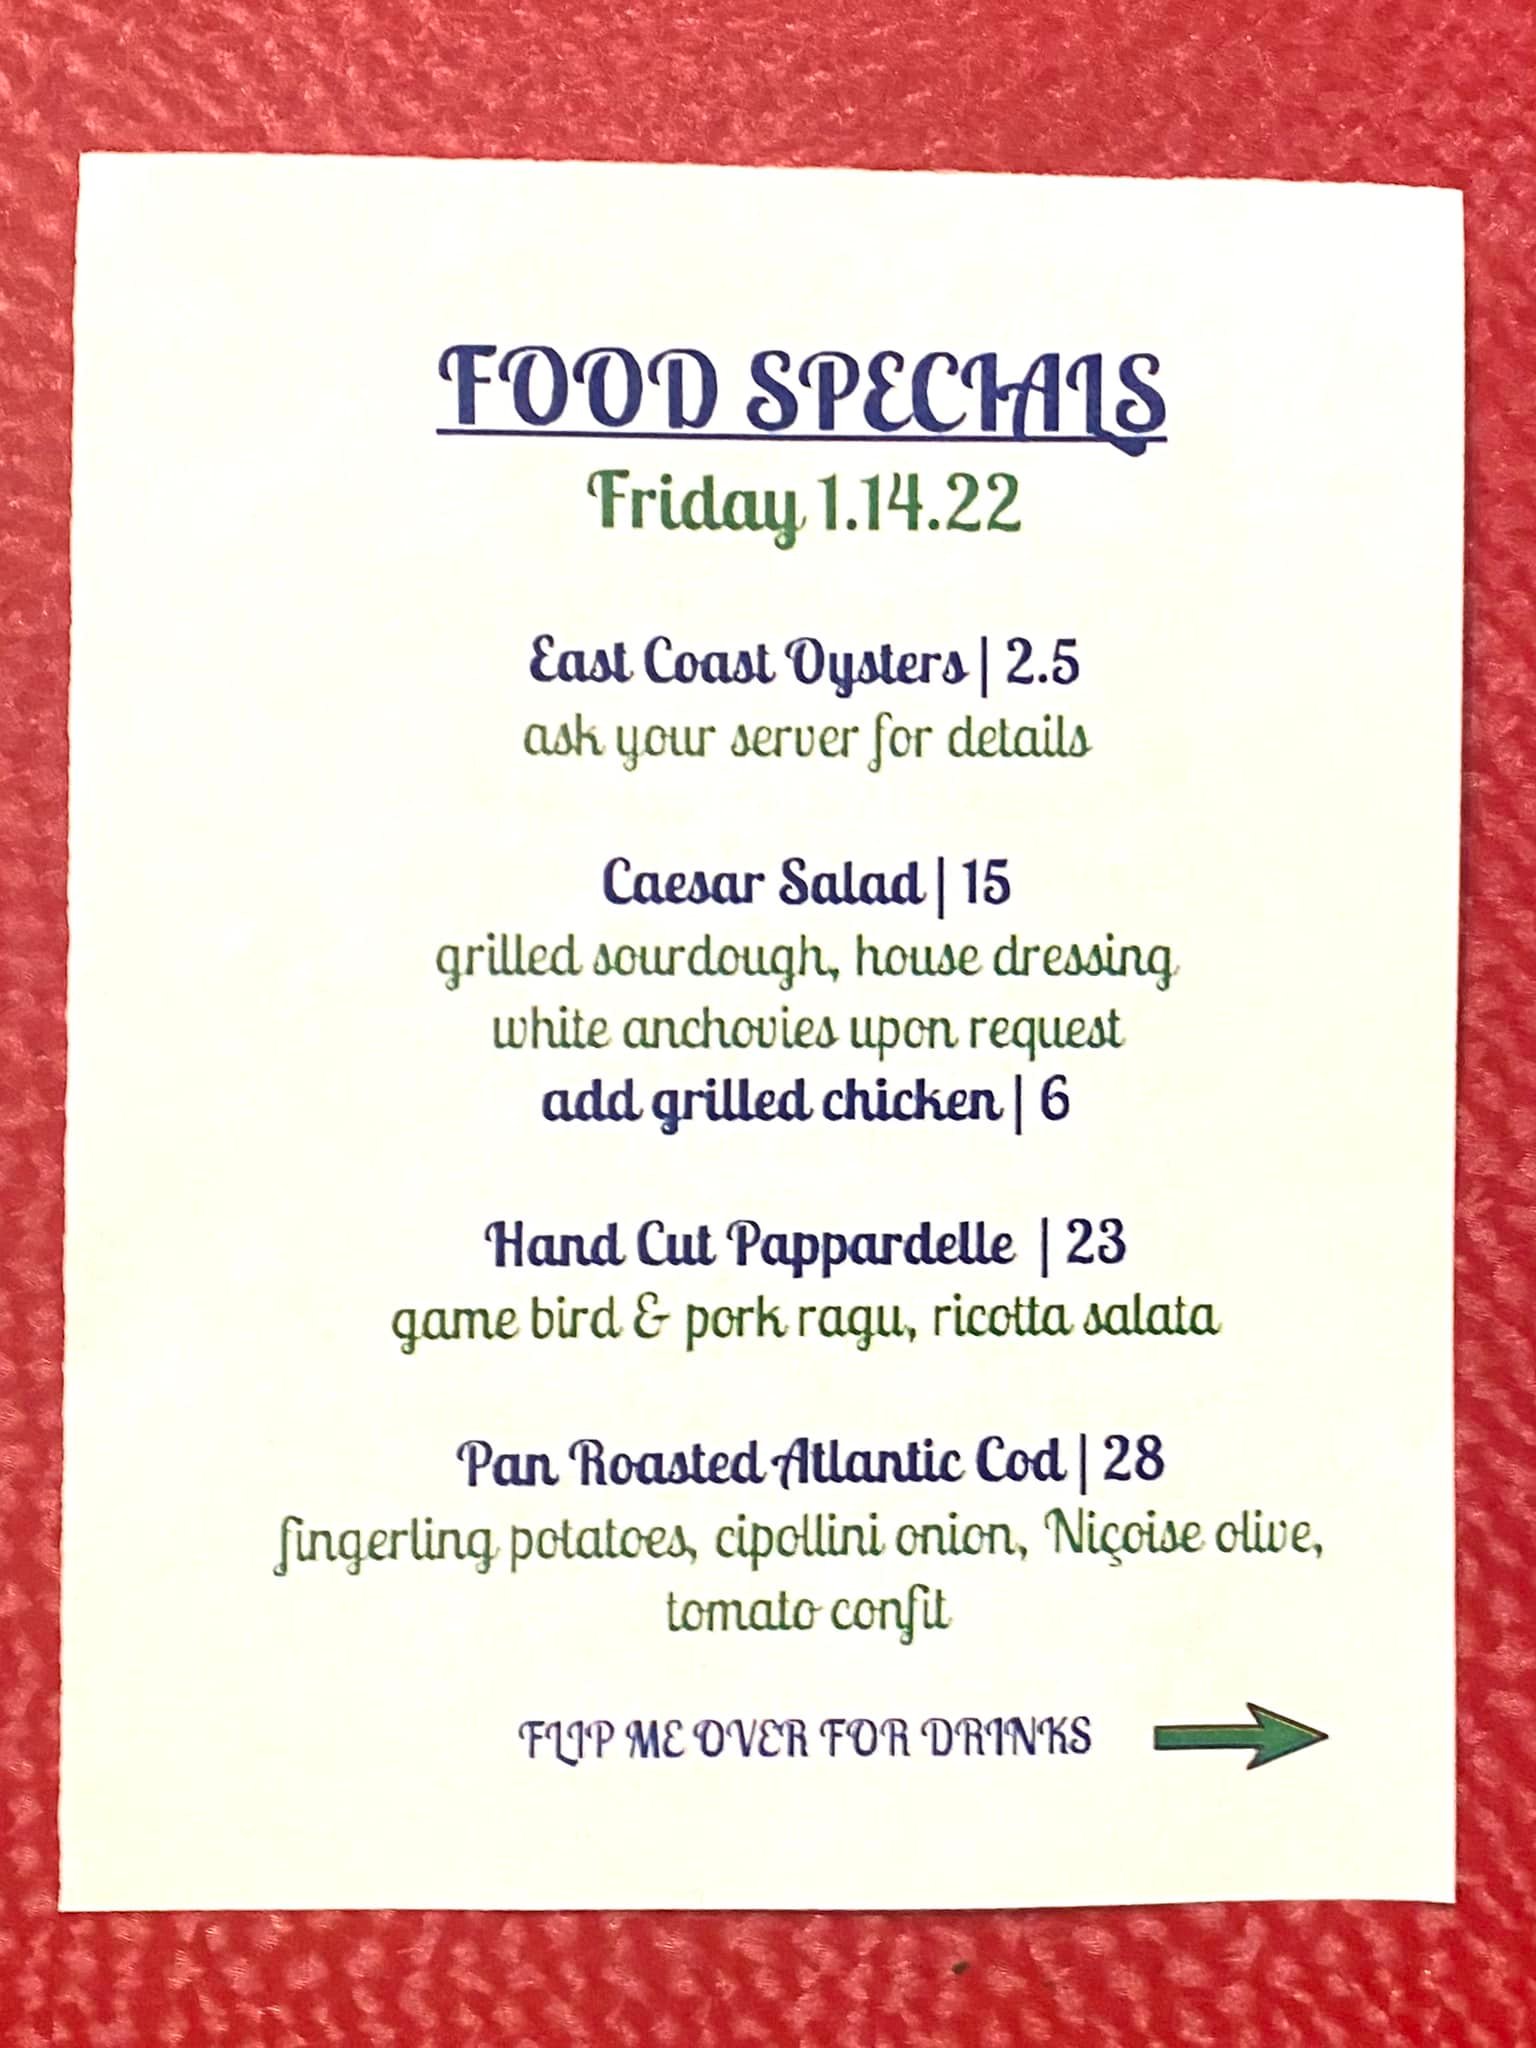 FOOD SPECIALS
Friday 1.14.22
East Coast Oysters | 2.5
ask your server for details
Caesar Salad | 15
grilled sourdough, house dressing
white anchovies upon request
add grilled chicken | 6
Hand Cut Pappardelle | 23
game bird & pork ragu, ricotta salata
Pan Roasted Atlantic Cod | 28
fingerling potatoes, cipollini onion, Niçoise olive,
tomato confit
FLIP ME OVER FOR DRINKS